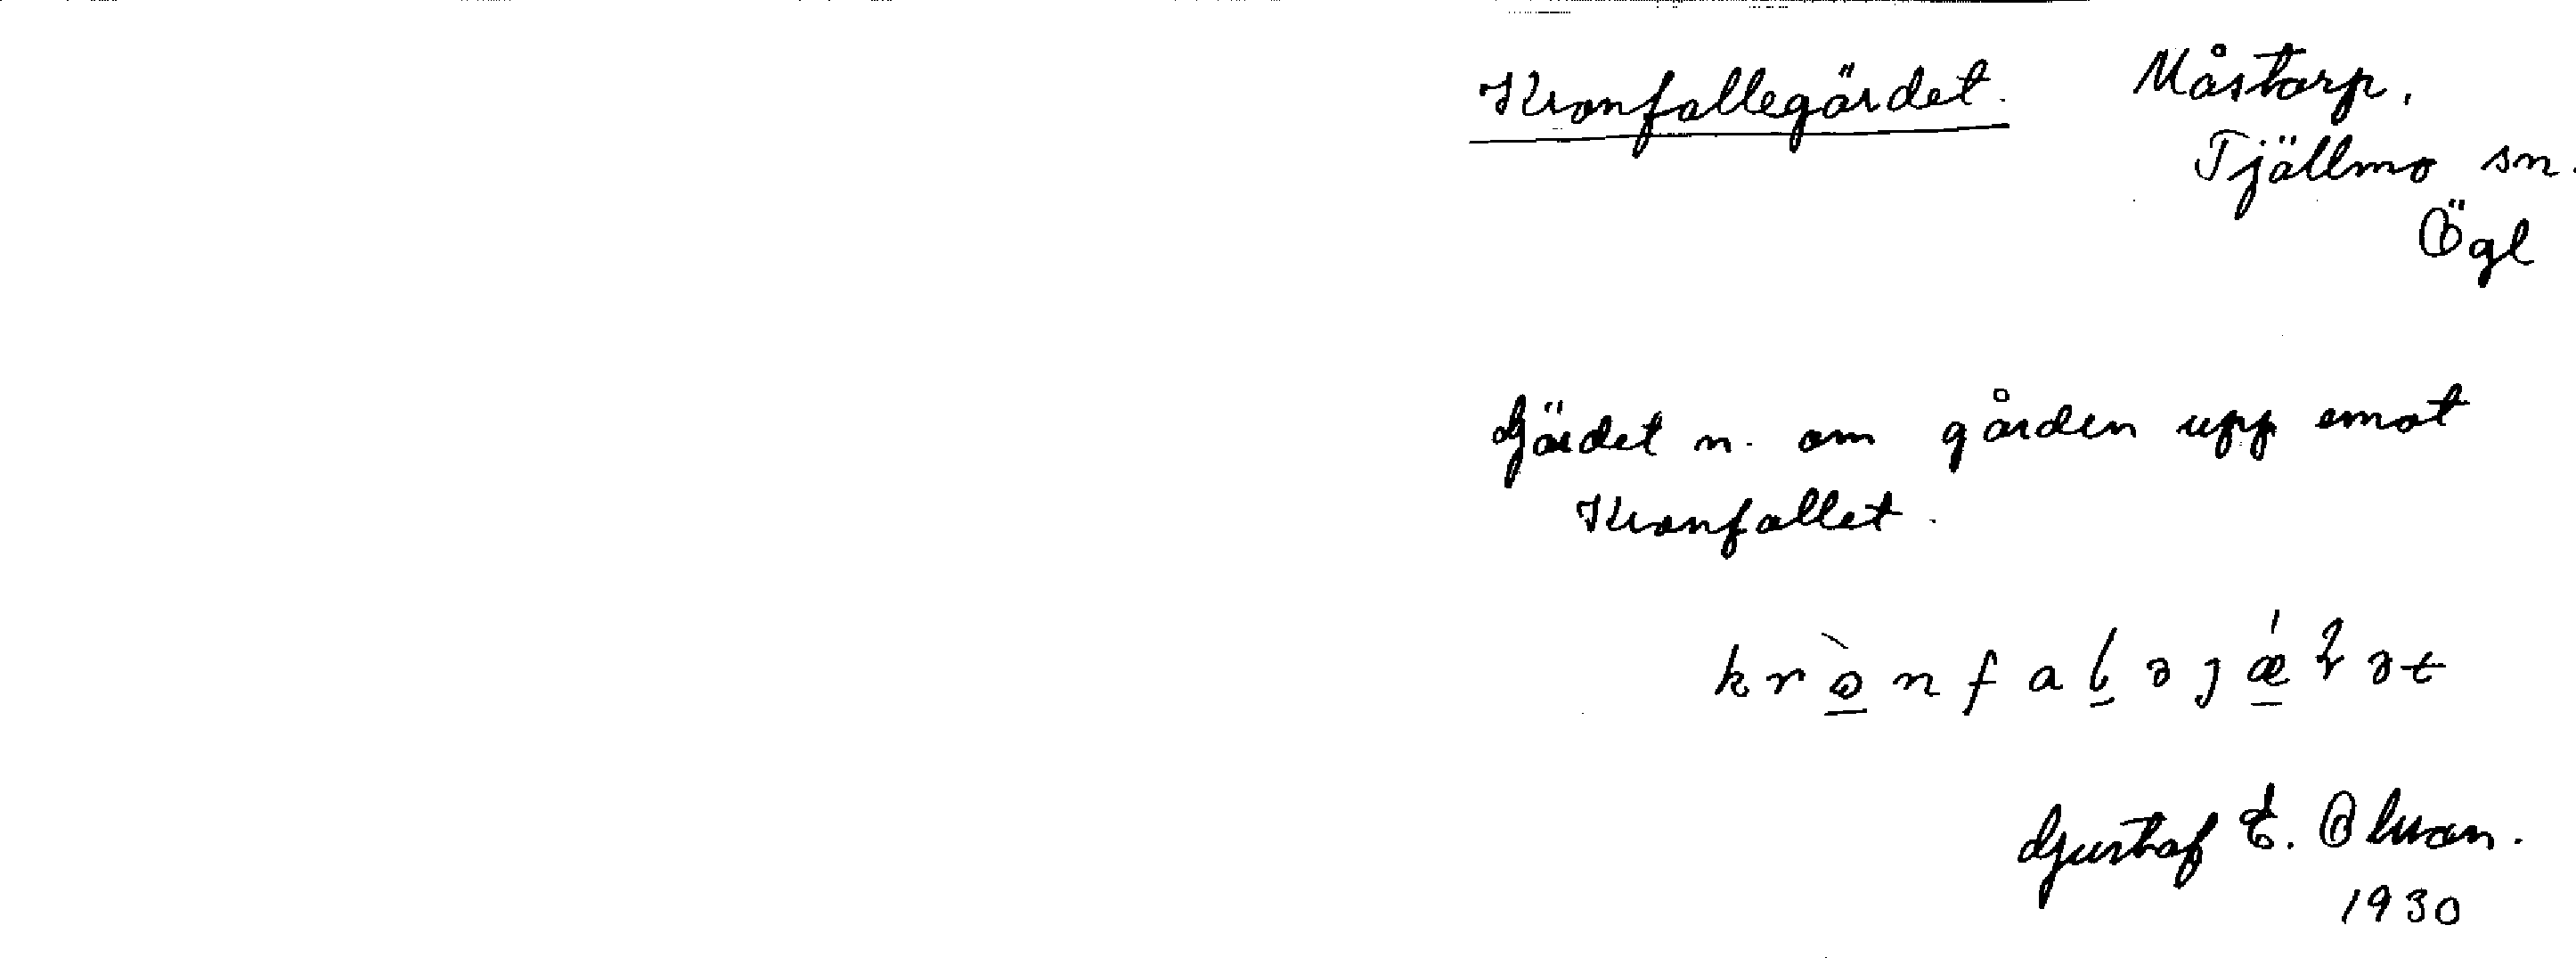 Kronfallegärdet. Måstorp.
Tjällmo sn.
Ögl
Gärdet n. om gården upp emot
Kronfallet.
Gustaf E. Olsson.
1930